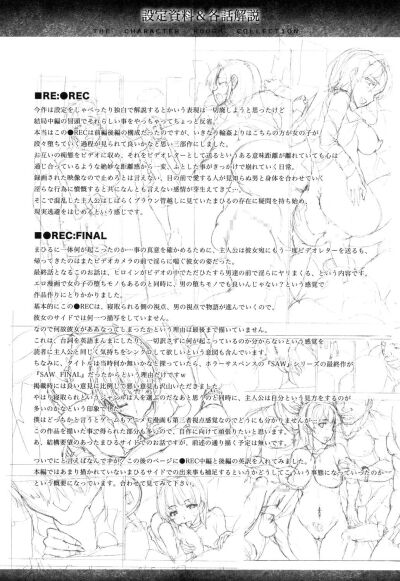 設定資料&各話解説
THE CHARACTER ROUGH COLLECTION
■RE:●REC
今作は設定をしゃべったり独白で解説するとかいう表現は一切廃しようと思ったけど
結局中編の冒頭でそれらしい事をやっちゃってちょっと反省。
本当はこの●RECは前編後編の構成だったのですが、いきなり輪姦よりはこちらの方が女の子が
段々堕ちていく過程が見られて良いかなと思い三部作にしました。
お互いの痴態をビデオに収め、それをビデオレターとして送るというある意味距離が離れていても心は
通じ合っているような絶妙な距離感から一変、ふとした事がきっかけで崩れていく日常。
録画された映像なので止めろとは言えない、目の前で愛する人が見知らぬ男と身体を合わせていく
淫らな行為に憤慨すると共になんとも言えない感情が芽生えてきて…。
そこで混乱した主人公はしばらくブラウン管越しに見ていたまひるの存在に疑問を持ち始め、
現実逃避をはじめるという感じです。
■●REC:FINAL
まひるに一体何が起こったのか…事の真意を確かめるために、主人公は彼女宛にもう一度ビデオレターを送るも、
帰ってきたのはまたビデオカメラの前で淫らに喘ぐ彼女の姿だった。
最終話となるこのお話は、ヒロインがビデオの中でただひたすら男達の前で淫らにヤリまくる、という内容です。
エロ漫画で女の子の堕ちモノもあるのと同時に、男の堕ちモノでも良いんじゃない?という感覚で
作品作りにとりかかりました。
基本的にこの●RECは、寝取られる側の視点、男の視点で物語が進んでいくので、
彼女のサイドでは何一つ描写をしていません。
なので何故彼女がああなってしまったかという理由は最後まで描いていません。
これは、台詞を英語まんまにしたり、一切訳さずに何が起こっているのか分からないという感覚を
読者に主人公と同じく気持ちをシンクロして欲しいという意図も含んでいます。
ちなみに、タイトルは当時何か無いかなと探っていたら、ホラーサスペンスの『SAW』シリーズの最終作が
『SAW FINAL』だったからという理由だけですw
掲載時には良い意見に比例して悪い意見も沢山いただきました。
やはり寝取られというジャンルは人を選ぶのだなあと思うのと同時に、主人公は自分という見方をするのが
多いのかなという印象で
僕はどっちかと言うとゲームもアニメも漫画も第三者位感覚なのでどうにも分かりませんが…
この作品を描いた事で得られた部分も多いので、自作に向けて頑張りたいと思います。
あ、結構要望のあったまひるサイドでのお話ですが、前述の通り描く予定は無いです。
ついでにと言えばなんですが、この後のページに●REC中編と後編の英訳を入れてみました。
本編ではあまり描かれていないまひるサイドでの出来事も補足するというかどうしてこういう事態になっていったのか…
という概要になっています。合わせて見てみて下さい。